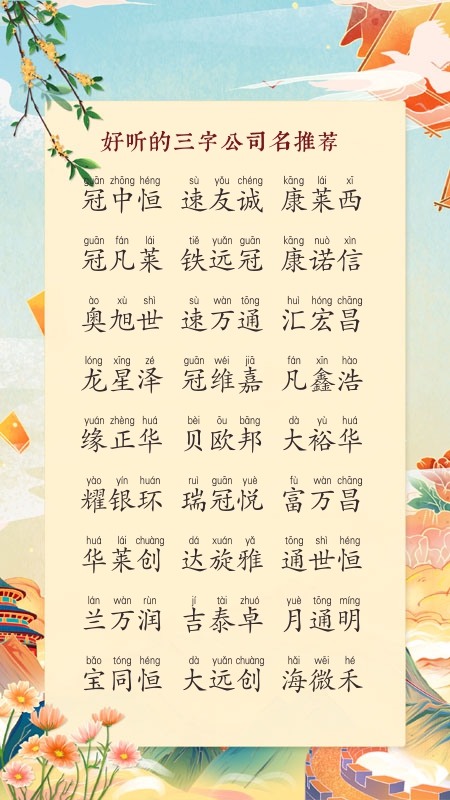 好听的三字公司名推荐
guān zhōng héng sù yǒu chéng kāng lái xī
冠中恒 速友诚 康莱西
guān fán lái tiě yuǎn guān kāng nuò xìn
冠凡莱 铁远冠 康诺信
ào xù shì sù wàn tōng huì hóng chāng
奥旭世 速万通 汇宏昌
lóng xīng zé guān wéi jiā fán xīn hào
龙星泽 冠维嘉 凡鑫浩
yuán zhèng huá bèi ōu bāng dà yù huá
缘正华 贝欧邦 大裕华
yào yín huán ruì guān yuè fù wàn chāng
耀银环 瑞冠悦 富万昌
huá lái chuàng dá xuán yǎ tōng shì héng
华莱创 达旋雅 通世恒
lán wàn rùn jí tài zhuó yuè tōng míng
兰万润 吉泰卓 月通明
bǎo tóng héng dà yuǎn chuàng hǎi wēi hé
宝同恒 大远创 海微禾